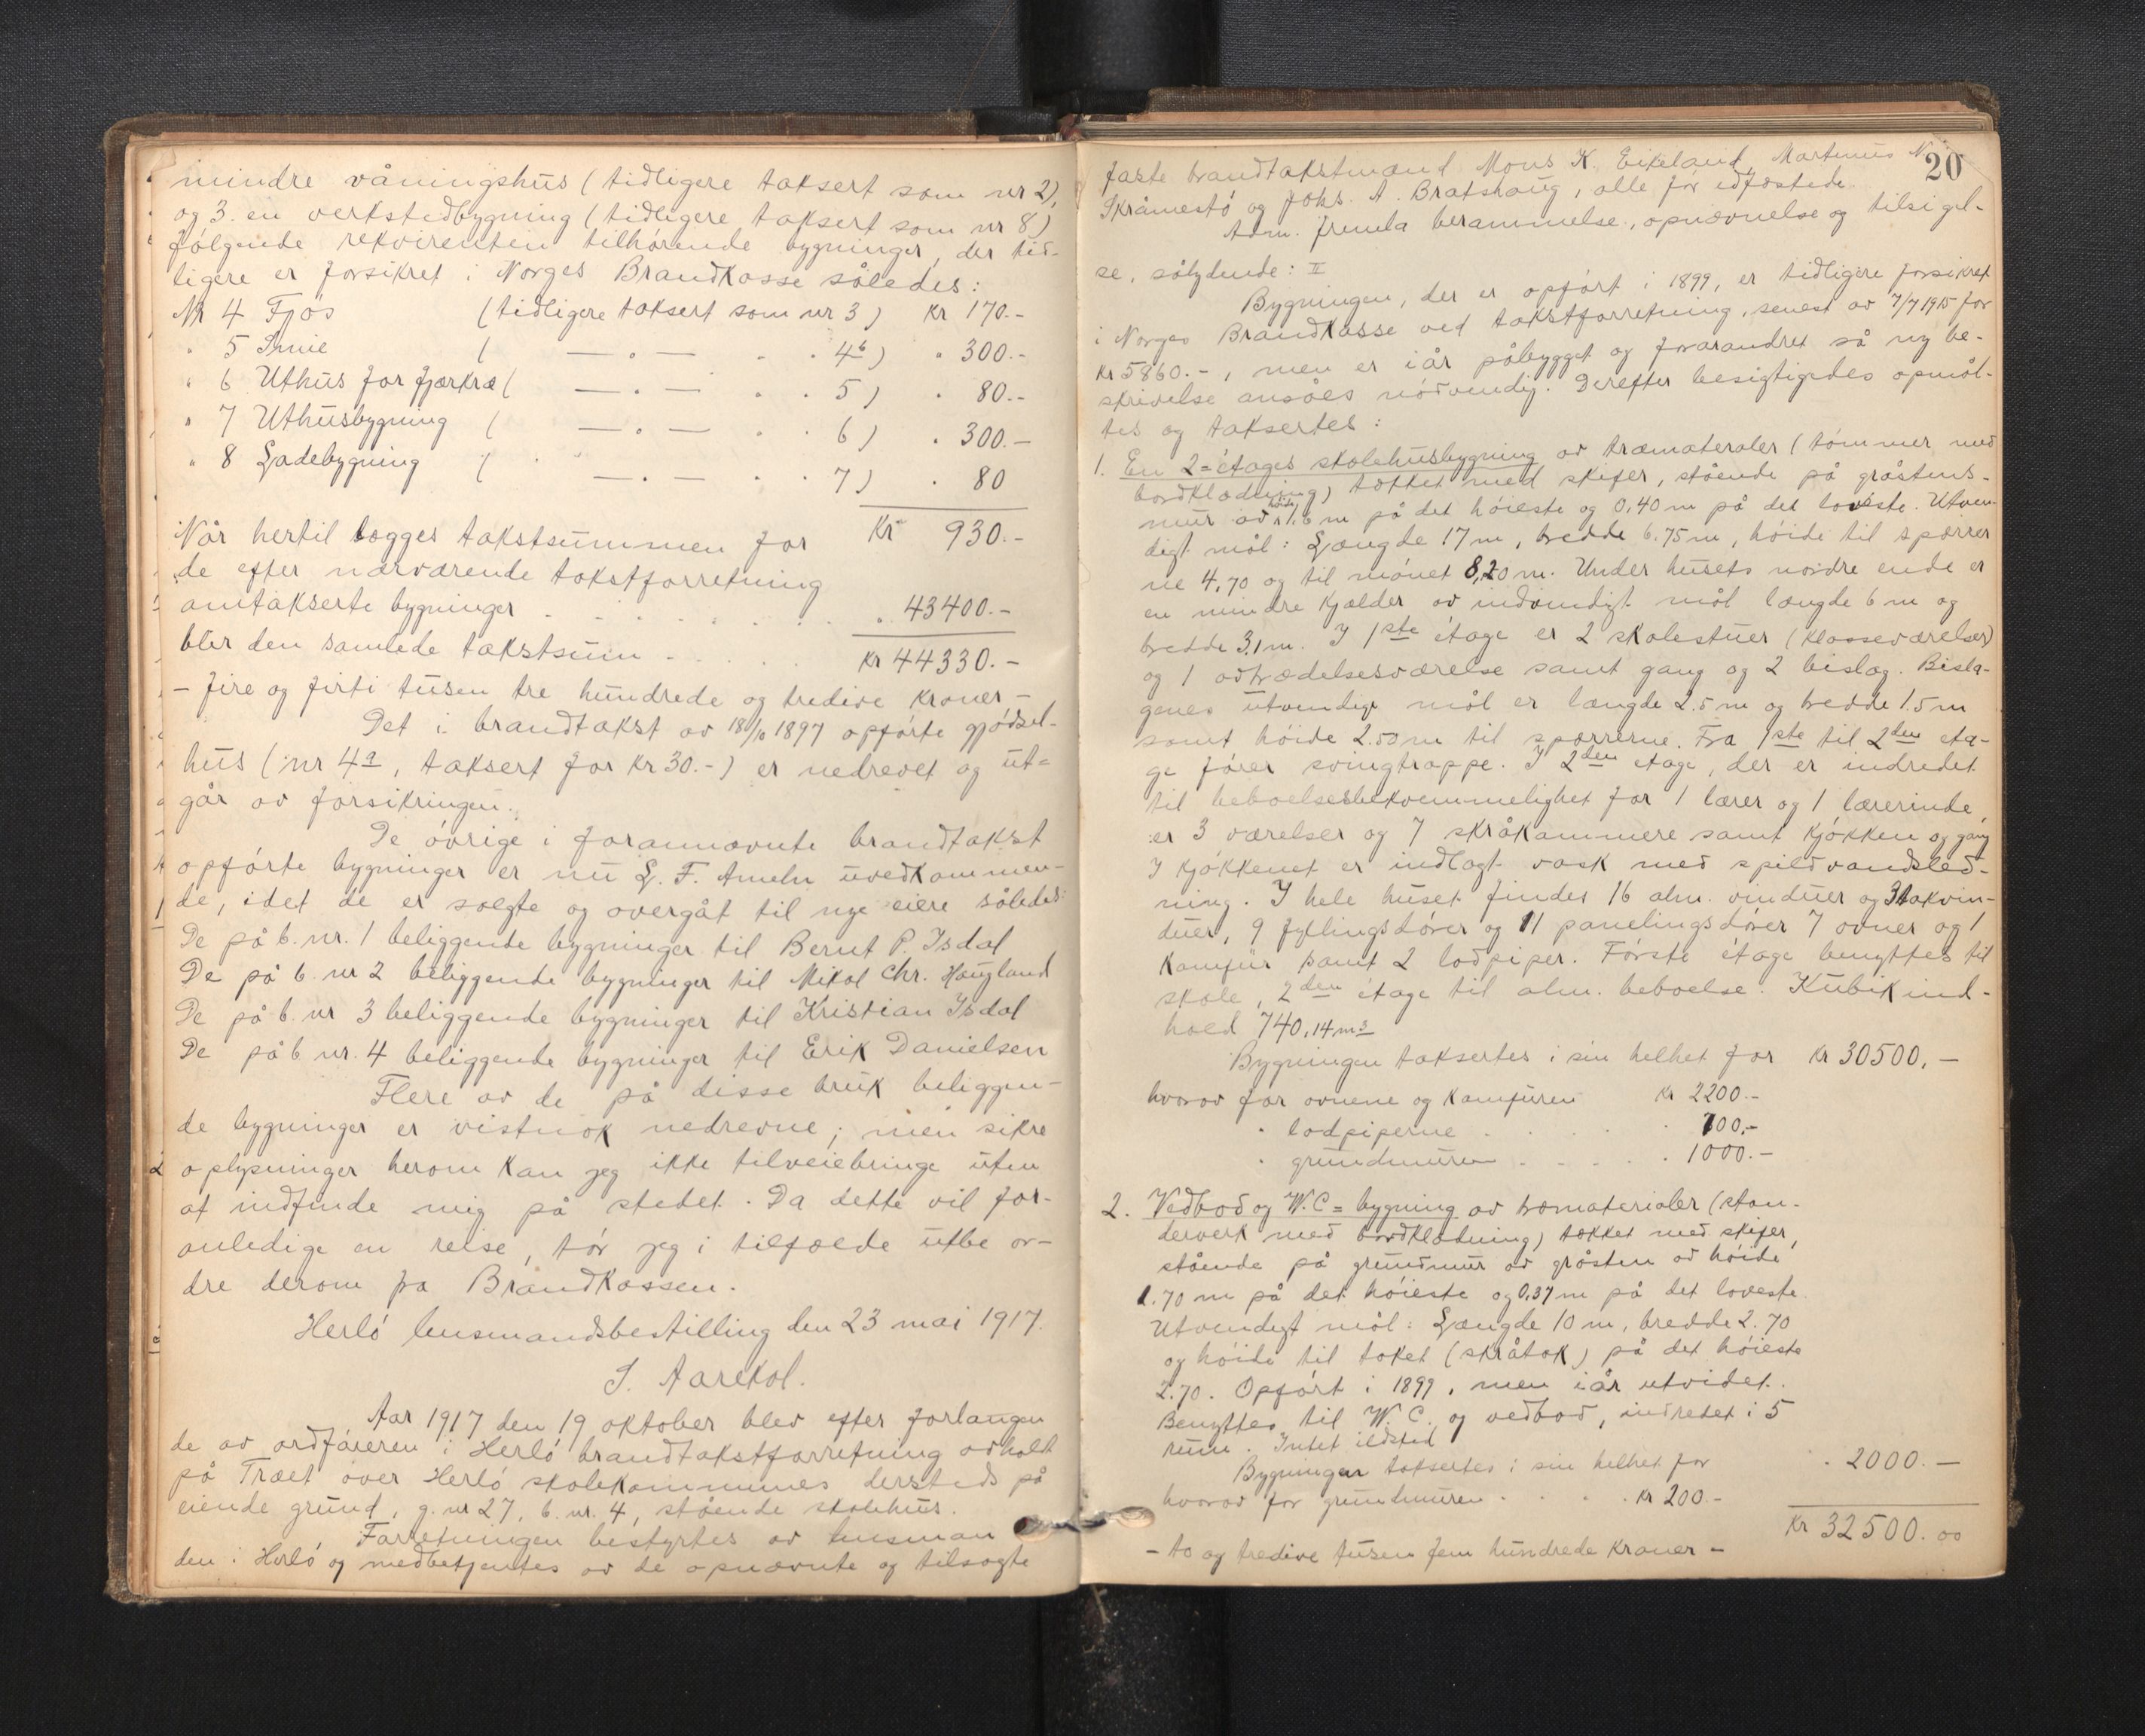 mindre våningshus (tidligere taksert som nr 2),
og 3. en verkstedbygning (tidligere taksert som nr 8)
følgende rekvirenten tilhørende bygninger, der tid-
ligere er forsikret i Norges Brandkasse således:
Nr 4 Fjøs (tidligere taksert som nr 3) Kr 170.-
" 5 Smie ( — " — " " 4b) " 300.-
" 6 Uthus for fjærkræ ( — " — " " 5) " 80.-
" 7 Uthusbygning ( — " — " " 6) " 300.-
" 8 Ladebygning ( — " — " " 7) " 80
Kr 930.-
Når hertil lægges takstsummen for
de efter nærværende takstforretning
omtakserte bygninger . . . . . . " 43400.-
blir den samlede takstsum . . . . Kr 44330.-
- fire og firti tusen tre hundrede og tredive kroner -
Det i brandtakst av 18/10 1897 opførte gjødsel-
hus (nr 4a, taksert for Kr 30.-) er nedrevet og ut-
går av forsikringen.
De øvrige i forannævnte brandtakst
opførte bygninger er nu L. F. Ameln uvedkommen-
de, idet de er solgte og overgåt til nye eiere således:
De på b. nr. 1 beliggende bygninger til Bernt P. Isdal
De på b. nr 2 beliggende bygninger til Mikal Chr. Haugland
De på b. nr 3 beliggende bygninger til Kristian Isdal
De på b. nr. 4 beliggende bygninger til Erik Danielsen
Flere av de på disse bruk beliggen-
de bygninger er vistnok nedrevne; men sikre
oplysninger herom kan jeg ikke tilveiebringe uten
at indfinde mig på stedet. Da dette vil for-
anledige en reise, tør jeg i tilfælde utbe or-
dre derom fra Brandkassen.
Herlø lensmandsbestilling den 23 mai 1917.
Aar 1917 den 19 oktober blev efter forlangen
de av ordføreren i Herlø brandtakstforretning avholdt
på Træet over Herlø skolekommunes dersteds på
eiende grund, g. nr 27, b. nr. 4, stående skolehus.
Forretningen bestyrtes av lensman
den i Herlø og medbetjentes av de opnævnte og tilsagte
20
faste brandtakstmænd Mons K. Eikeland, Martinus N.
Skråmestø og Johs. A. Bratshaug, alle før edfæstede.
Adm. fremla berammelse, opnævnelse og tilsigel-
se, sålydende: II
Bygningen, der er opført i 1899, er tidligere forsikret
i Norges Brandkasse ved takstforretning, senest av 7/7 1915 for
Kr 5860.-, men er iår påbygget og forandret så ny be-
skrivelse ansåes nødvendig. Derefter besigtigedes opmål-
tes og taksertes:
1. En 2-étages skolehusbygning av træmaterialer (tømmer med
bordklædning) tækket med skifer, stående på gråstens-
mur av høide 1.6 m på det høieste og 0,40 m på det laveste. Utven-
digt mål: Længde 17 m, bredde 6.75 m, høide til sparrer
ne 4,70 og til mønet 8,20 m. Under husets nordre ende er
en mindre kjælder av indvendigt mål længde 6 m og
bredde 3,1 m. I 1ste étage er 2 skolestuer (klasseværelser)
og 1 avtrædelsesværelse samt gang og 2 bislag. Bisla-
genes utvendige mål er længde 2.5 m og bredde 1.5 m
samt høide 2.50 m til sparrerne. Fra 1ste til 2den eta-
ge fører svingtrappe. I 2den etage, der er indredet
til beboelsesbekvemmelighet for 1 lærer og 1 lærerinde,
er 3 værelser og 7 skråkammere samt kjøkken og gang
I kjøkkenet er indlagt vask med spildvandsled-
ning. I hele huset findes 16 alm. vinduer og 3 takvin-
duer, 9 fyllingsdører og 11 panelingsdører 7 ovner og 1
komfur samt 2 lodpiper. Første étage benyttes til
skole, 2den étage til alm. beboelse. Kubikind-
hold 740,14 m3
Bygningen taksertes i sin helhet for Kr 30500,—
hvorav for ovnene og komfuren Kr 2200.-
" lodpiperne . . . . " 700.-
" grundmuren . . . . " 1000.-
2. Vedbod og W.C-bygning av træmaterialer (stan-
derverk med bordklædning) tækket med skifer,
stående på grundmur av gråsten av høide
1.70 m på det høieste og 0,37 m på det laveste.
Utvendigt mål: Længde 10 m, bredde 2.70
og høide til taket (skråtak) på det høieste
2.70. Opført i 1899, men iår utvidet.
Benyttes til W.C. og vedbod, indredet i 5
rum. Intet ildsted
Bygningen taksertes i sin helhet for " 2000.—
hvorav for grundmuren . . . . Kr 200.-
Kr 32500.00
- to og tredive tusen fem hundrede kroner -